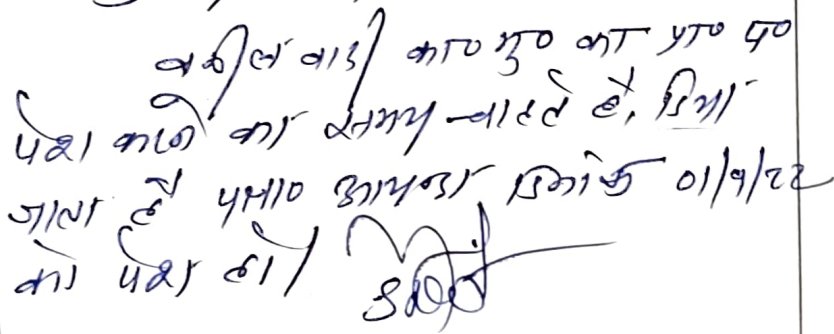 वकील वादी का0 मु0 का प्रा0 प0
पेश करने का समय चाहते है, दिया
जाता है पत्रा0 आयन्दा दिनांक 01/9/22
को पेश हो।